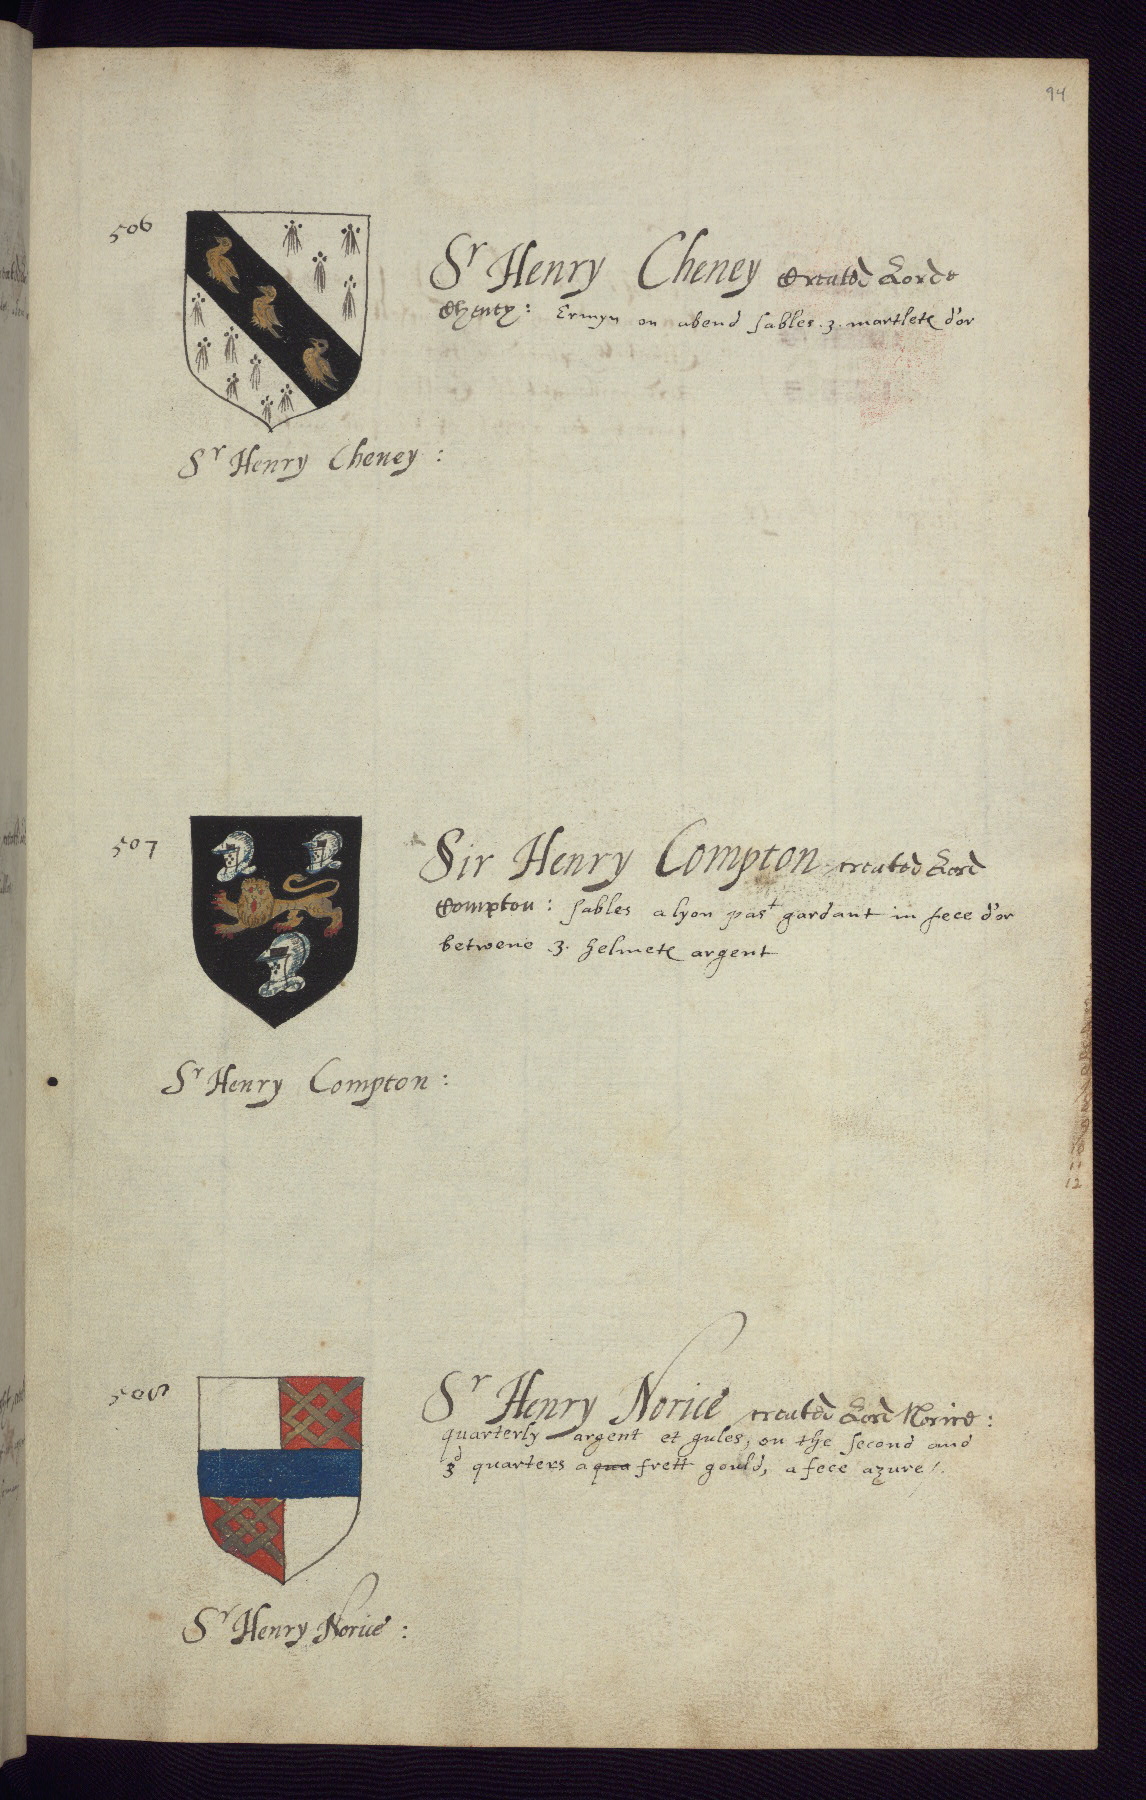 94
506
Sr Henry Cheney Created Lorde
Cheney: Ermyn on abend sables .3. martlets d'or
Sr Henry Cheney:
507
Sir Henry Compton created Lord
Compton: sables a lyon past gardant in fece d'or
betwene .3. helmets argent
Sr Henry Compton:
12
508
Sr Henry Norice created Lord Norice:
quarterly argent et gules, on the second and
3d quarters a qua frett gould, a fece azure /.
Sr Henry Norice: